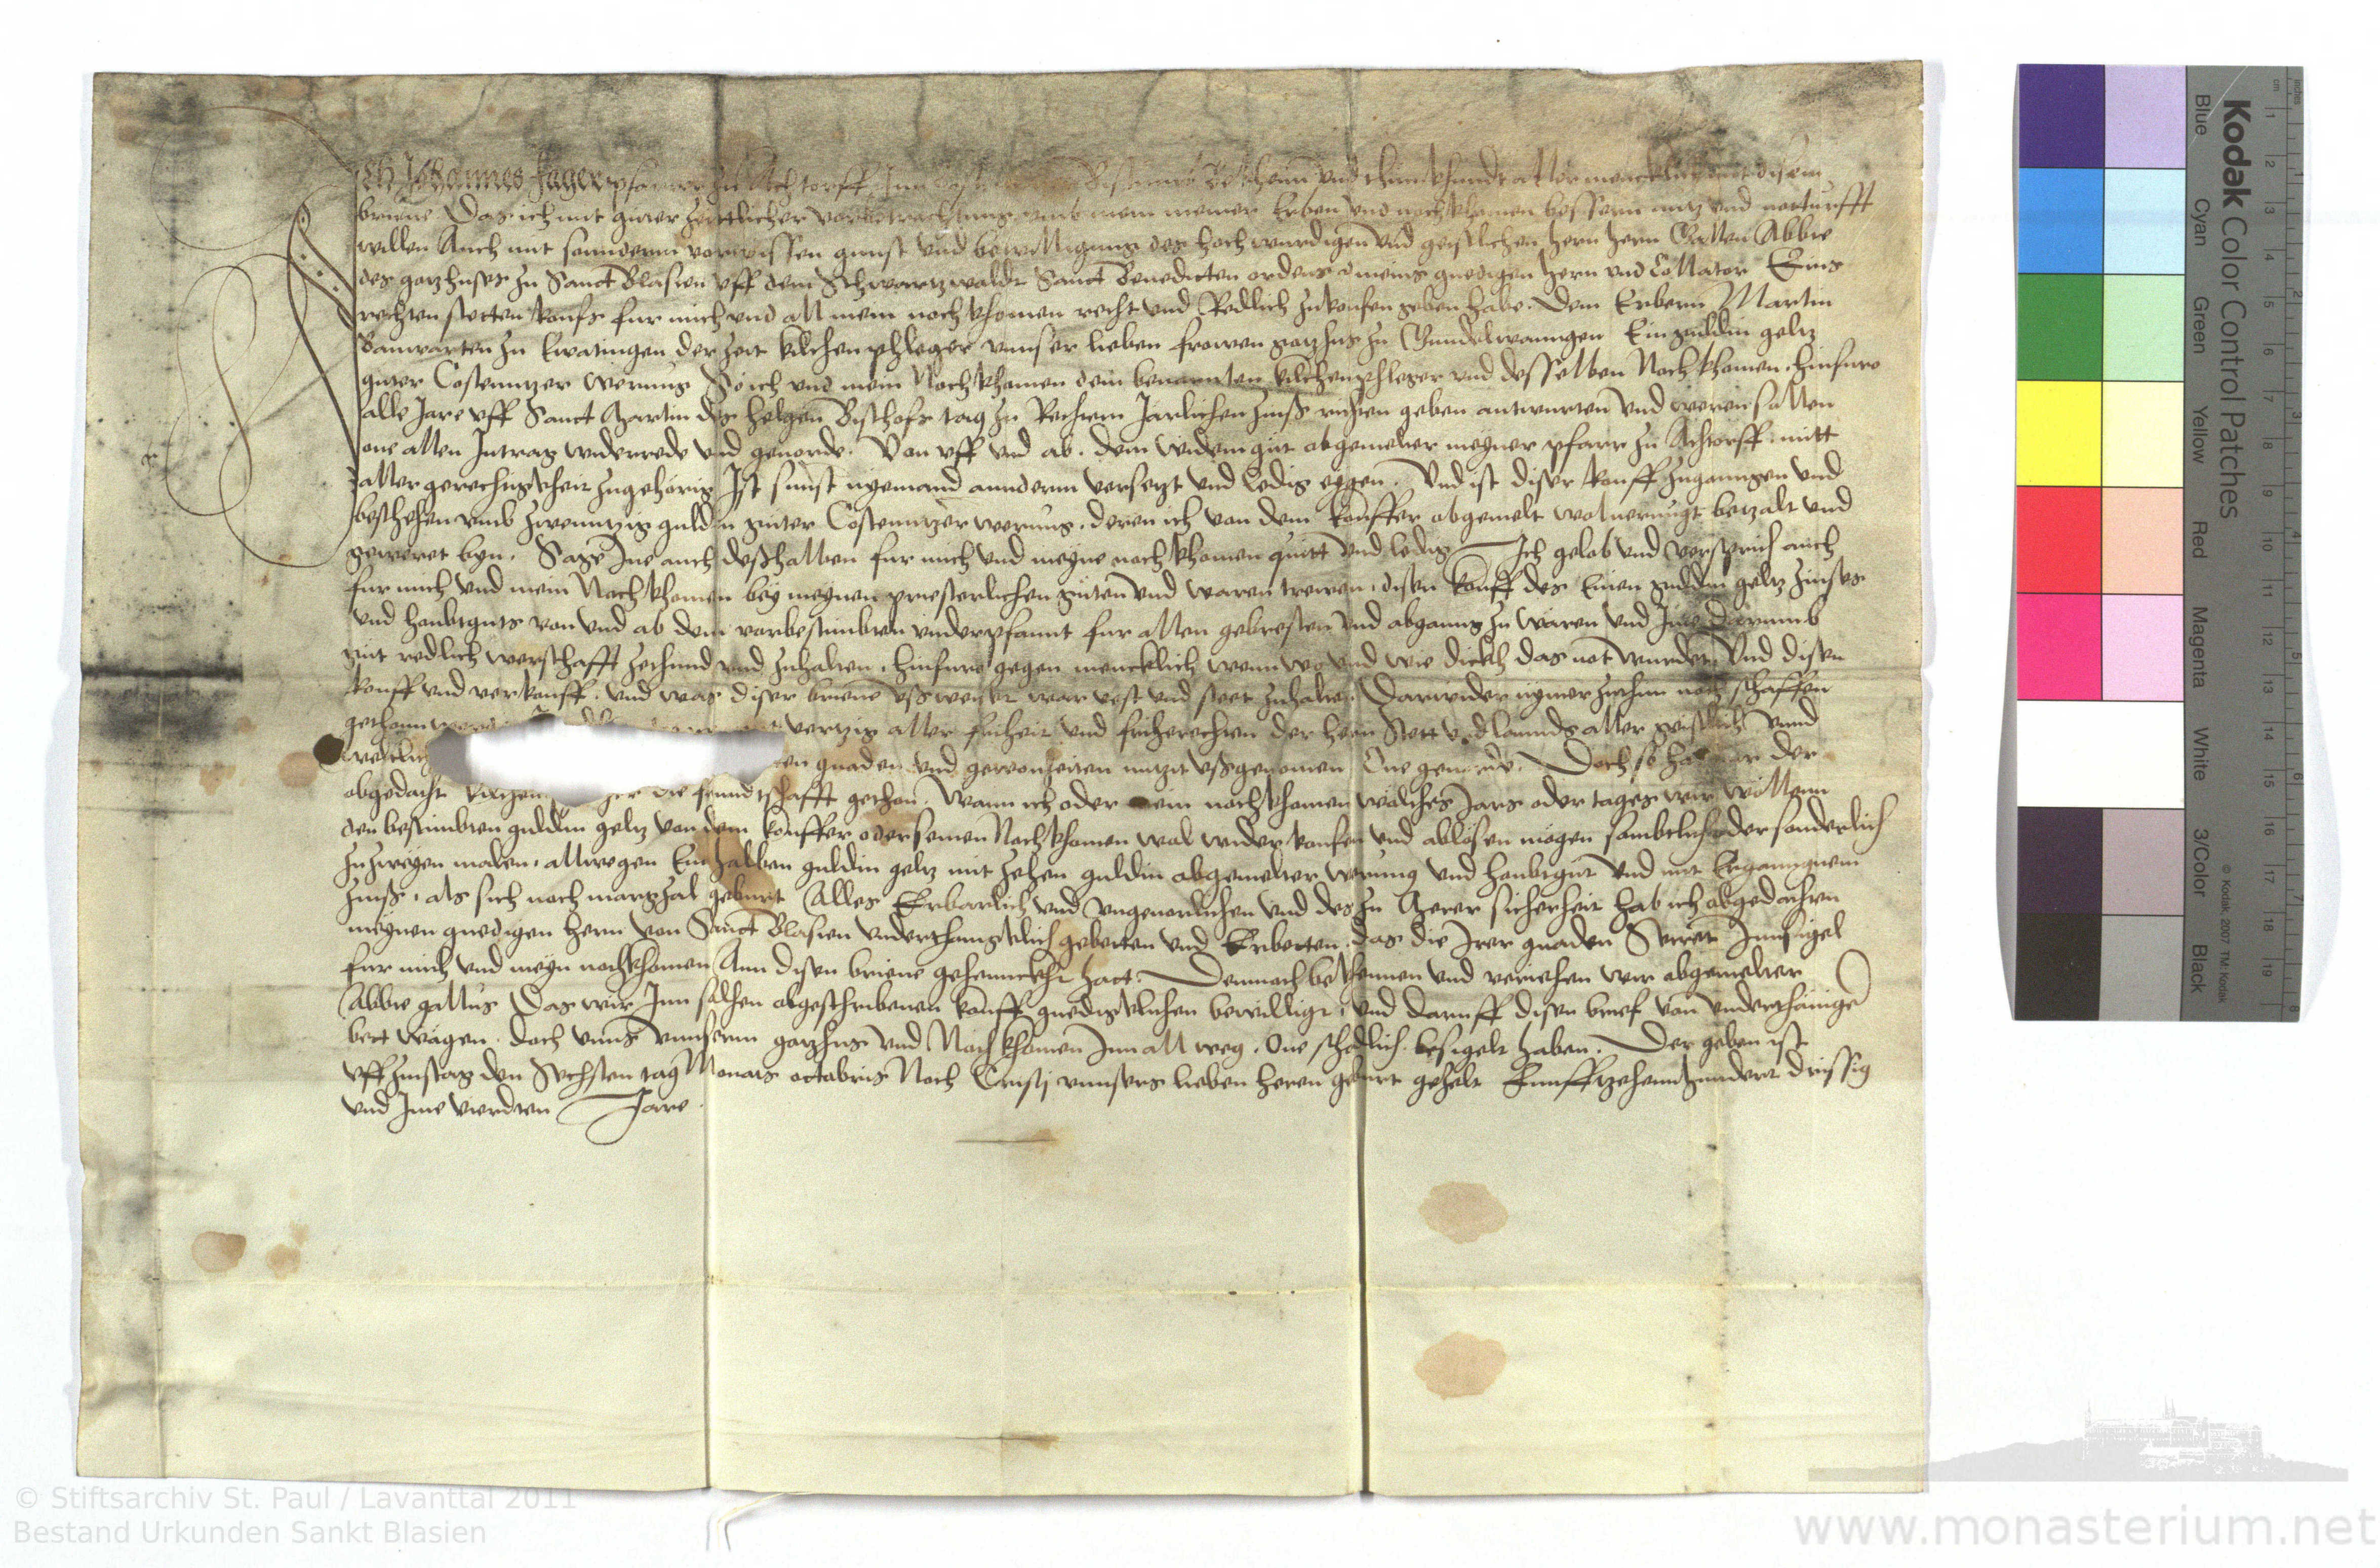 Ich Johannes Jager pfarrer zu Achtorff Bekhenn und thun khundt allermencklich mit disem
brieue Das ich mit guter zyttlicher vorbetrachtung umb mein meiner Erben und nachkhomen bessern nutz und notturfft
willen Auch mit sannderm vorwissen gunst und bewilligung des hochwurdigen und geistlichen hern hern Gallen Abbte
des gotzhuses zu Sanct Blasien uff dem Schwartzwaldt Sanct Benedicten ordens meins gnedigen hern und Collator Eins
rechten stetten kaufs fur mich und all mein nachkhomen recht und Redlich zukaufen geben habe. Dem Erbern Martin
Banwarten zu Ewatingen der zeit kilchenphleger unnser lieben frowen gotzhus zu Gundelwanngen Ein guldin geltz
guter Costenntzer werung So ich und mein Nachkhomen dem benannten kilchenphleger und desselben Nachkhomen hinfuro
alle Jare uff Sanct Martin des heilgen Bischofs tag zu Rechtem Jarlichen zinß richten geben antwurten und weren sollen
one allen Intrag widerrede und geuerde. Von uff und ab. dem widemgut obgemelter meyner pfarr zu Achtorff mitt
aller gerechtigkheit zugehörig Ist sunst nyemand annderm versetzt und ledig eygen. Und ist diser kauff zuganngen und
beschehen umb zwenntzig guldin guter Costenntzer werung. deren ich von dem kauffer obgemelt woluernügt betzalt und
geweret byn. Sage Ine auch deßhalben fur mich und meyne nachkhomen quitt und ledig Ich gelob und versprich auch
fur mich und mein Nachkhomen bey meynen priesterlichen guten und waren trewen, disen kauff des Einen guldin geltz zinses
und haubtguts von und ab dem vorbestimbten underpfannt fur allen gebresten und abganng zu wären und Ine darumb
gut redlich werschafft zethund und zuhalten. hinfuro gegen mencklich wenn wo und wie dickh das not wurdet Und disen
kauff und verkauff. und was diser brieue ußweyst war vest und stett zuhalten. Darwider nymer zethun noch schaffen
gethann werden vertzig aller friheit und friherechten der hern Stett und lannds aller geistlich unnd
weltlich gnaden und gewonheiten nutzit ußgenomen One geuerde. Doch so hat mir der
obgedacht kilchenphleger die frundtschafft gethan. Wann ich oder mein nachkhomen wölches Jars oder tages wir wöllenn
den bestimbten guldin geltz von dem kauffer oder seinen Nachkhomen wol wider kaufen und ablösen mögen sambtlich oder sonderlich
zu zweyen malen. allwegen Ein halben guldin geltz mit zehen guldin obgemelter werung und haubtgut und mit Erganngnem
zinß. als sich nach martzal geburt Alles Erbarlich und ungeuarlichen und des zu Merer sicherheit hab ich obgedachten
meynen gnedigen hern von Sanct Blasien underthanigklich gebetten und Erbetten. das die Irer gnaden Secret Innsigel
fur mich und meyn nachkhomen Ann disen brieue gehennckht hatt. Demnach bekhennen und veriehen wir obgemelter
Abbte gallus Das wir Inn solhen obgeschribenen kauff gnedigklichen bewilligt, und daruff disen brief von underthänige
bett wägen. doch unns unnserm gotzhus und Nachkhomen Inn all weg. One schedlich. besigelt haben. Der geben ist
uff zinstag den Sechsten tag Monats octobris Nach Cristj unnsers lieben heren geburt gezelt Funfftzehennhundert drissig
und Ime vierdten Jare.
Kodak Color Control Patches
Blue Cyan Green Yellow Red Magenta White 3/Color Black
© Kodak, 2007 TM: Kodak
cm 1 2 3 4 5 6 7 8 9 10 11 12 13 14 15 16 17 18 19
inches 1 2 3 4 5 6 7 8
© Stiftsarchiv St. Paul / Lavanttal 2011
Bestand Urkunden Sankt Blasien
www.monasterium.net